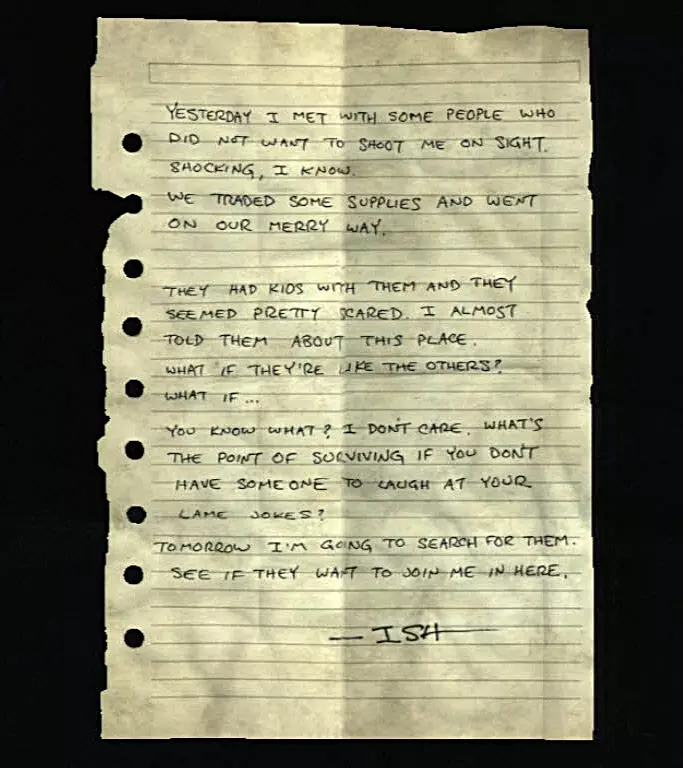 YESTERDAY I MET WITH SOME PEOPLE WHO
DID NOT WANT TO SHOOT ME ON SIGHT.
SHOCKING, I KNOW.
WE TRADED SOME SUPPLIES AND WENT
ON OUR MERRY WAY.
THEY HAD KIDS WITH THEM AND THEY
SEEMED PRETTY SCARED. I ALMOST
TOLD THEM ABOUT THIS PLACE.
WHAT IF THEY'RE LIKE THE OTHERS?
WHAT IF...
YOU KNOW WHAT? I DON'T CARE. WHAT'S
THE POINT OF SURVIVING IF YOU DON'T
HAVE SOMEONE TO LAUGH AT YOUR
LAME JOKES?
TOMORROW I'M GOING TO SEARCH FOR THEM.
SEE IF THEY WANT TO JOIN ME IN HERE.
— ISH